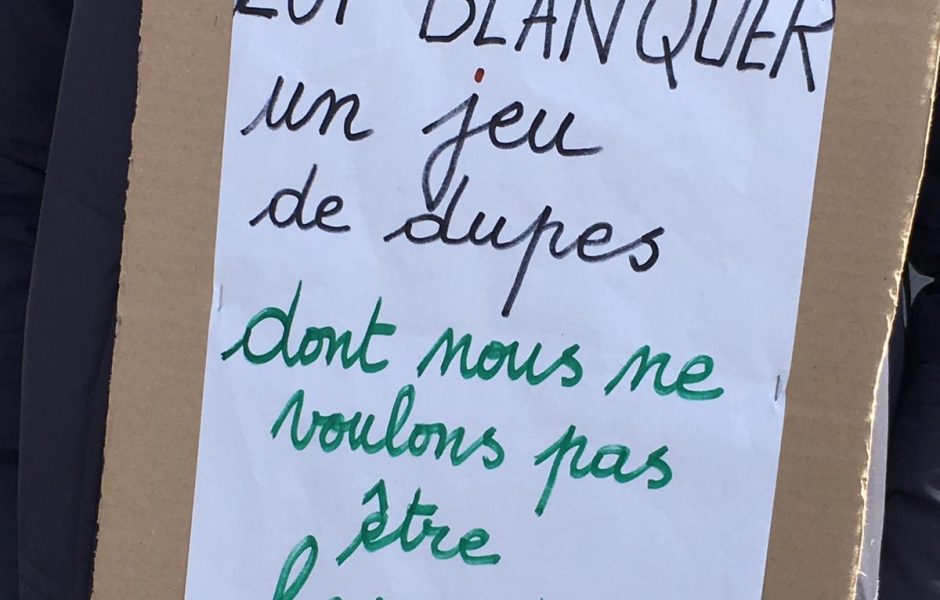 LOI BLANQUER
un jeu
de dupes
dont nous ne
voulons pas
être